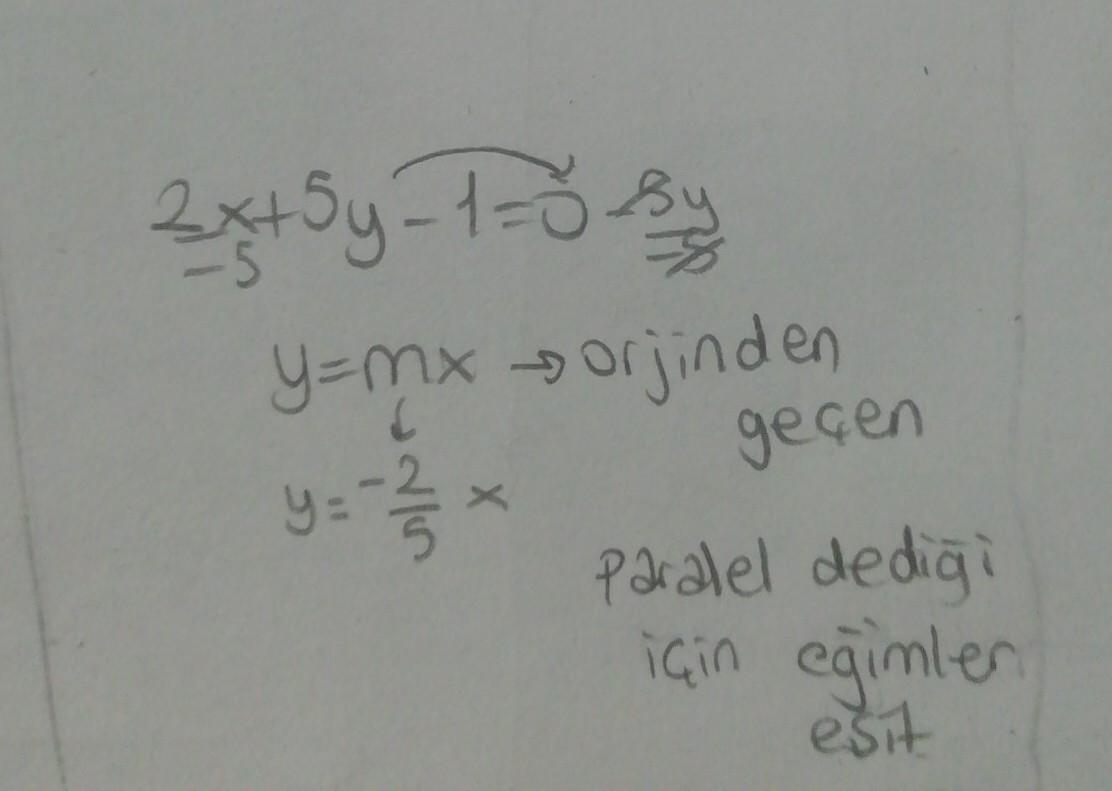 2x+5y-1=0 -5y
-5 -5
y=mx → orjinden
geçen
↓
y=-2/5 x
paralel dediği
için eğimler
eşit